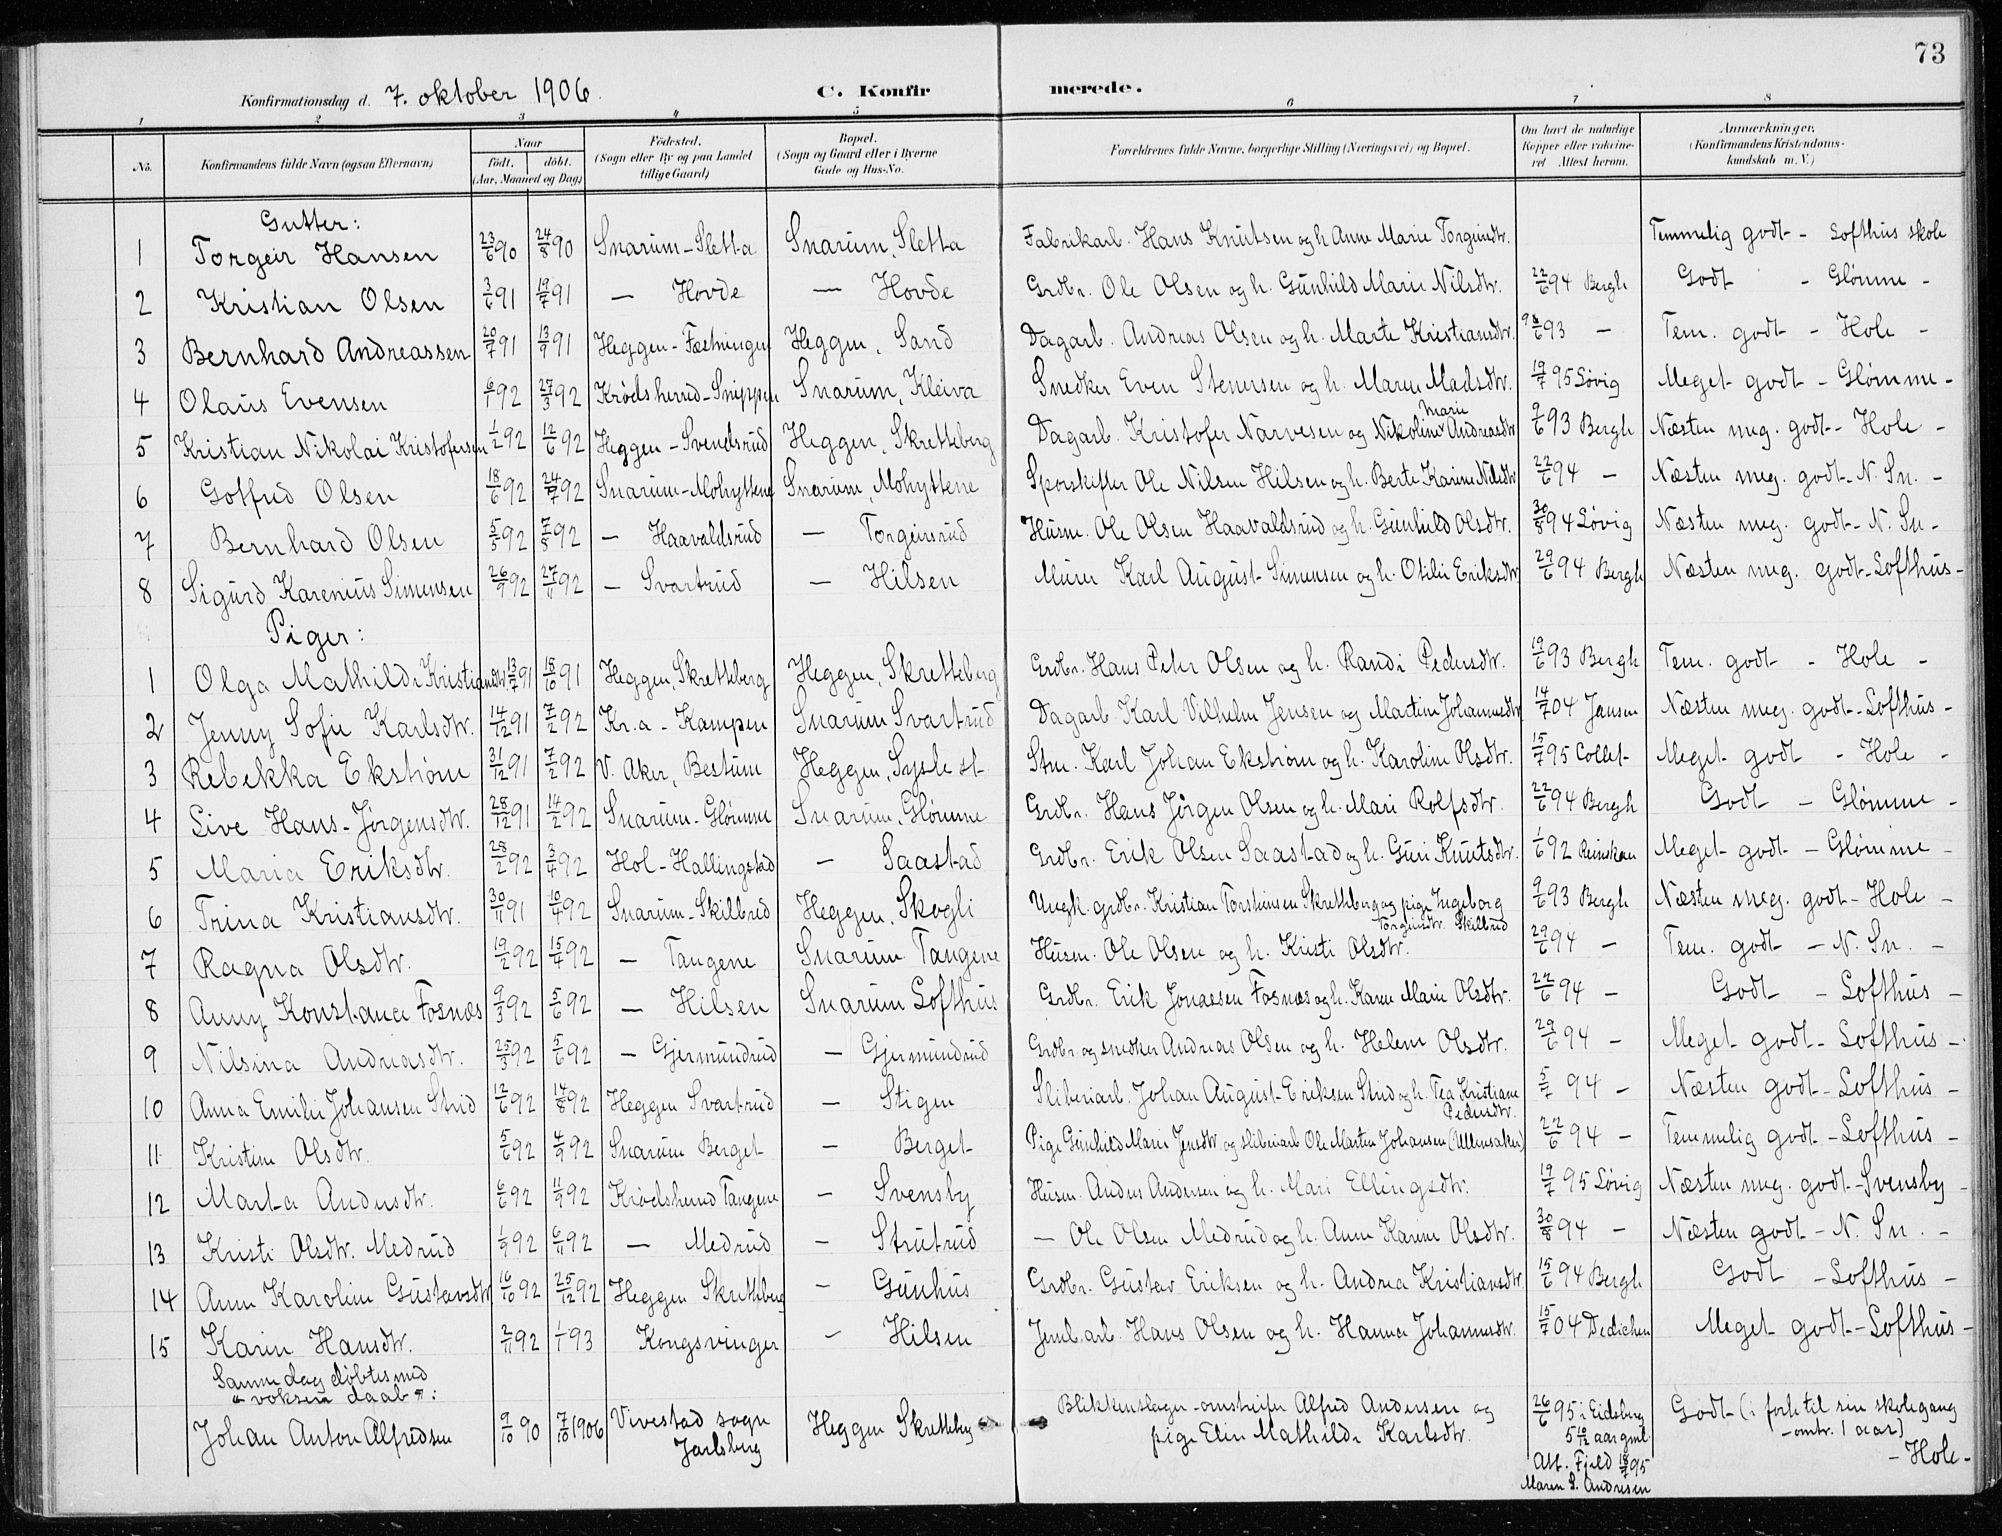 73
Konfirmationsdag d. 7. oktober 1906. C. Konfirmerede.
1 2 3 4 5 6 7 8
No. Konfirmandens fulde Navn (ogsaa Efternavn) Naar født. døbt. (Aar, Maaned og Dag) Fødested. (Sogn eller By og paa Landet tillige Gaard) Bopæl. (Sogn og Gaard eller i Byerne Gade og Hus-No. Forældrenes fulde Navne, borgerlige Stilling (Næringsvei) og Bopæl. Om havt de naturlige Kopper eller vaccineret Attest herom. Anmærkninger. (Konfirmandens Kristendomskundskab m. V.)
Gutter:
1 Torgeir Hansen 23/6 90 24/8 90 Snarum-Sletta Snarum, Sletta Fabrikarb. Hans Knutsen og h. Anne Marie Torgeirsdtr. Temmelig godt - Lofthus skole
2 Kristian Olsen 3/6 91 19/7 91 — Hovde — Hovde Grdbr. Ole Olsen og h. Gunhild Marie Nilsdtr. 22/6 94 Bergh Godt - Glømme -
3 Bernhard Andreassen 20/7 91 13/9 91 Heggen-Fætningen Heggen, Sand Dagarb. Andreas Olsen og h. Marte Kristiansdtr. 93 - Tem. godt - Hole -
4 Olaus Evensen 6/1 92 27/3 92 Krødsherred-Snippen Snarum, Kleiva Snedker Even Stenersen og h. Maren Madsdtr. 19/7 95 Løvig Meget godt - Glømme -
5 Kristian Nikolai Kristofersen 1/2 92 12/6 92 Heggen-Svendsrud Heggen, Skretteberg Dagarb. Kristofer Narvesen og Nikoline Marie Andreasdtr 9/6 93 Bergh Næsten meg. godt - Hole -
6 Gotfred Olsen 18/6 92 24/7 92 Snarum-Mohyttene Snarum, Mohyttene Sporskifter Ole Nilsen Hilsen og h. Berte Karine Nilsdtr 22/6 94 - Næsten meg. godt - N. Sn. -
7 Bernhard Olsen 5/5 92 7/8 92 — Haavaldsrud — Torgeirsrud Husm. Ole Olsen Haavaldsrud og h. Gunhild Olsdtr. 30/8 94 Løvig Næsten meg. godt - N. Sn -
8 Sigurd Karenius Simensen 26/9 92 27/11 92 — Svartrud — Hilsen Murer Karl August Simensen og h. Otilie Eriksdtr 29/6 94 Bergh Næsten meg. godt - Lofthus -
Piger:
1 Olga Mathilde Kristiansdtr 13/7 91 18/10 91 Heggen, Skretteberg Heggen, Skretteberg Grdbr. Hans Peter Olsen og h. Randi Pedersdtr. 19/6 93 Bergh Tem. godt - Hole -
2 Jenny Sofie Karlsdtr. 14/12 91 7/2 92 Kr.a - Kampen Snarum Svartrud Dagarb. Karl Vilhelm Jensen og Martine Johannesdtr 14/7 04 Jansen Næsten meg. godt - Lofthus -
3 Rebekka Ekstrøm 31/12 91 7/2 92 V. Aker, Bestum Heggen, Sysle st Stm. Karl Johan Ekstrøm og h. Karoline Olsdtr. 15/7 95 Collet Meget godt - Hole -
4 Live Hans-Jørgensdtr. 28/12 91 14/2 92 Snarum-Glømme Snarum, Glømme Grdbr. Hans Jørgen Olsen og h. Mari Rolfsdtr. 22/6 94 Bergh Godt - Glømme -
5 Maria Eriksdtr. 28/2 92 3/4 92 Hol-Hallingstad - Saastad Grdbr. Erik Olsen Saastad og h. Guri Knutsdtr. 1/6 92 Meget godt - Glømme -
6 Trina Kristiansdtr. 30/11 91 10/4 92 Snarum-Skilbred Heggen, Skogli Ungk. grdbr. Kristian Torstensen Skretteberg og pige Ingeborg Torgeirsdtr. Skilbred 9/6 93 Bergh Næsten meg. godt - Hole -
7 Ragna Olsdtr. 19/2 92 15/4 92 — Tangene Snarum Tangene Husm. Ole Olsen og h. Kristi Olsdtr. 29/6 94 - Tem. godt - N. Sn. -
8 Anny Konstance Fosnæs 9/3 92 5/6 92 — Hilsen Snarum Lofthus Grdbr. Erik Jonassen Fosnæs og h. Karen Marie Olsdtr. 22/6 94 - Godt - Lofthus -
9 Nilsina Andreasdtr. 25/3 92 5/6 92 - Gjermundrud - Gjermundrud Grdbr. og snedker Andreas Olsen og h. Helene Olsdtr. 29/6 94 - Meget godt - Lofthus -
10 Anna Emilie Johansen Strid 12/6 92 14/8 92 Heggen Svartrud - Stigen Sliberiarb. Johan August Eriksen Strid og h. Tea Kristiane Pedersdtr. 94 - Næsten godt - Lofthus -
11 Kristine Olsdtr. 5/6 92 4/9 92 Snarum Berget - Berget Pige Gunhild Marie Jensdtr og sliberiarb Ole Martin Johansen (Ullensaker) 22/6 94 - Temmelig godt - Lofthus -
12 Marta Andersdtr. 6/6 92 11/9 92 Krødsherred Tangene - Svensby Husm. Anders Andersen og h. Mari Ellingsdtr. 19/7 95 Løvig Næsten meg. godt - Svensby -
13 Kristi Olsdtr. Medrud 1/9 92 6/11 92 — Medrud - Strutrud — Ole Olsen Medrud og h. Anne Karine Olsdtr. 30/8 94 - Næsten godt - N. Sn. -
14 Anne Karoline Gustavsdtr 16/10 92 25/12 92 Heggen Skretteberg - Gunhus Grdbr. Gustav Eriksen og h. Andrea Kristiansdtr 15/6 94 Bergh Godt - Lofthus -
15 Karin Hansdtr. 2/11 92 1/1 93 Kongsvinger - Hilsen Jernb.arb. Hans Olsen og h. Hanna Johannesdtr. 15/7 04 Dedichen Meget godt - Lofthus -
Samme dag døbtes med
"voksen daab":
Johan Anton Alfredsen 9/10 90 7/10 1906 Vivestad sogn Jarlsberg Heggen Skretteberg Blikkenslager-omstreifer Alfred Andersen og pige Elin Mathilde Karlsdtr. 26/6 95 i Eidsberg 5 aar gml. Att. Fjeld 95 Maren S. Andresen Godt (i forh. til sin skolegang - omtr. 1 aar) - Hole -